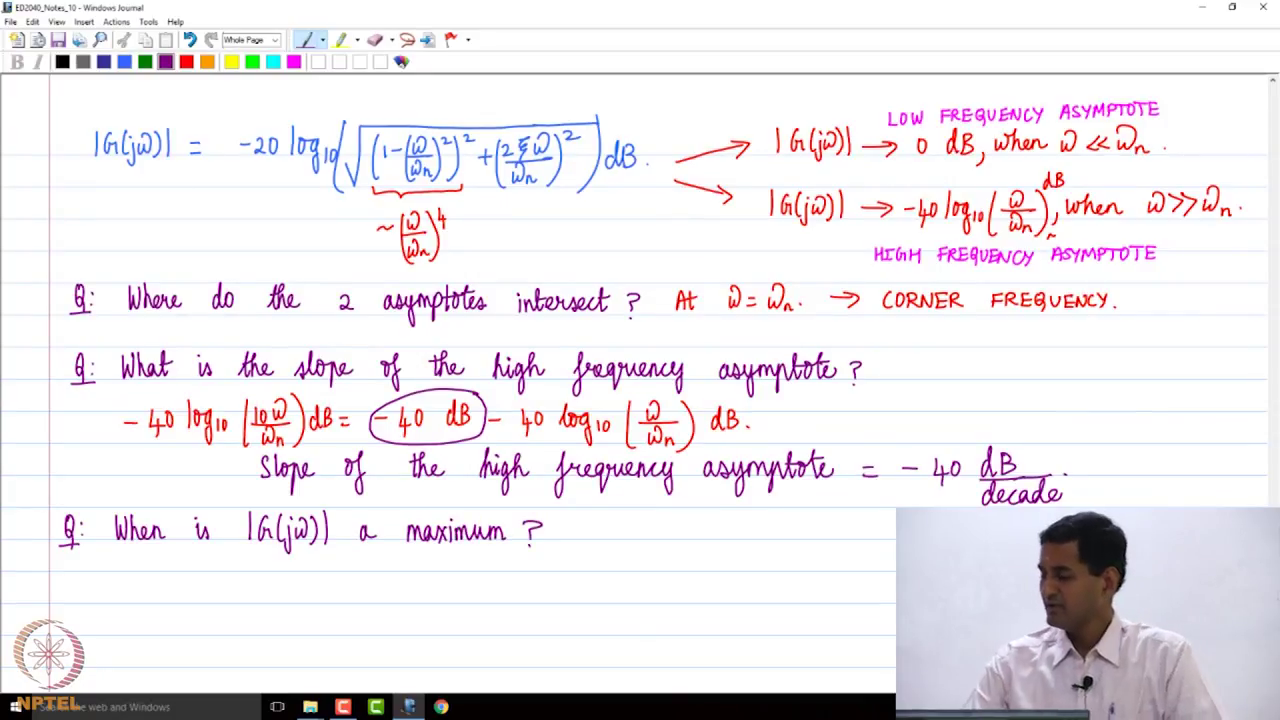 ED2040_Notes_10 - Windows Journal
File Edit View Insert Actions Tools Help
Whole Page
B I
|G(jω)| = -20 log₁₀(√((1-(ω/ωn)²)² + (2ξω/ωn)²)) dB.
~(ω/ωn)⁴
LOW FREQUENCY ASYMPTOTE
|G(jω)| → 0 dB, when ω ≪ ωn.
|G(jω)| → -40 log₁₀(ω/ωn) dB, when ω ≫ ωn.
HIGH FREQUENCY ASYMPTOTE
Q: Where do the 2 asymptotes intersect? At ω = ωn. → CORNER FREQUENCY.
Q: What is the slope of the high frequency asymptote?
-40 log₁₀(10ω/ωn) dB = -40 dB - 40 log₁₀(ω/ωn) dB.
Slope of the high frequency asymptote = -40 dB/decade.
Q: When is |G(jω)| a maximum?
NPTEL
Search the web and Windows